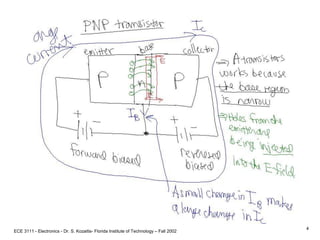 PNP transistor
large
current
Ic
emitter
base
collector
E
P
n
P
→ A transistors
works because
the base region
is narrow
→ Holes from the
emitter are
being injected
into the E-field
+
-
IB
+
-
forward biased
reversed
biased
A small change in IB makes
a large change in Ic
ECE 3111 - Electronics - Dr. S. Kozaitis- Florida Institute of Technology – Fall 2002